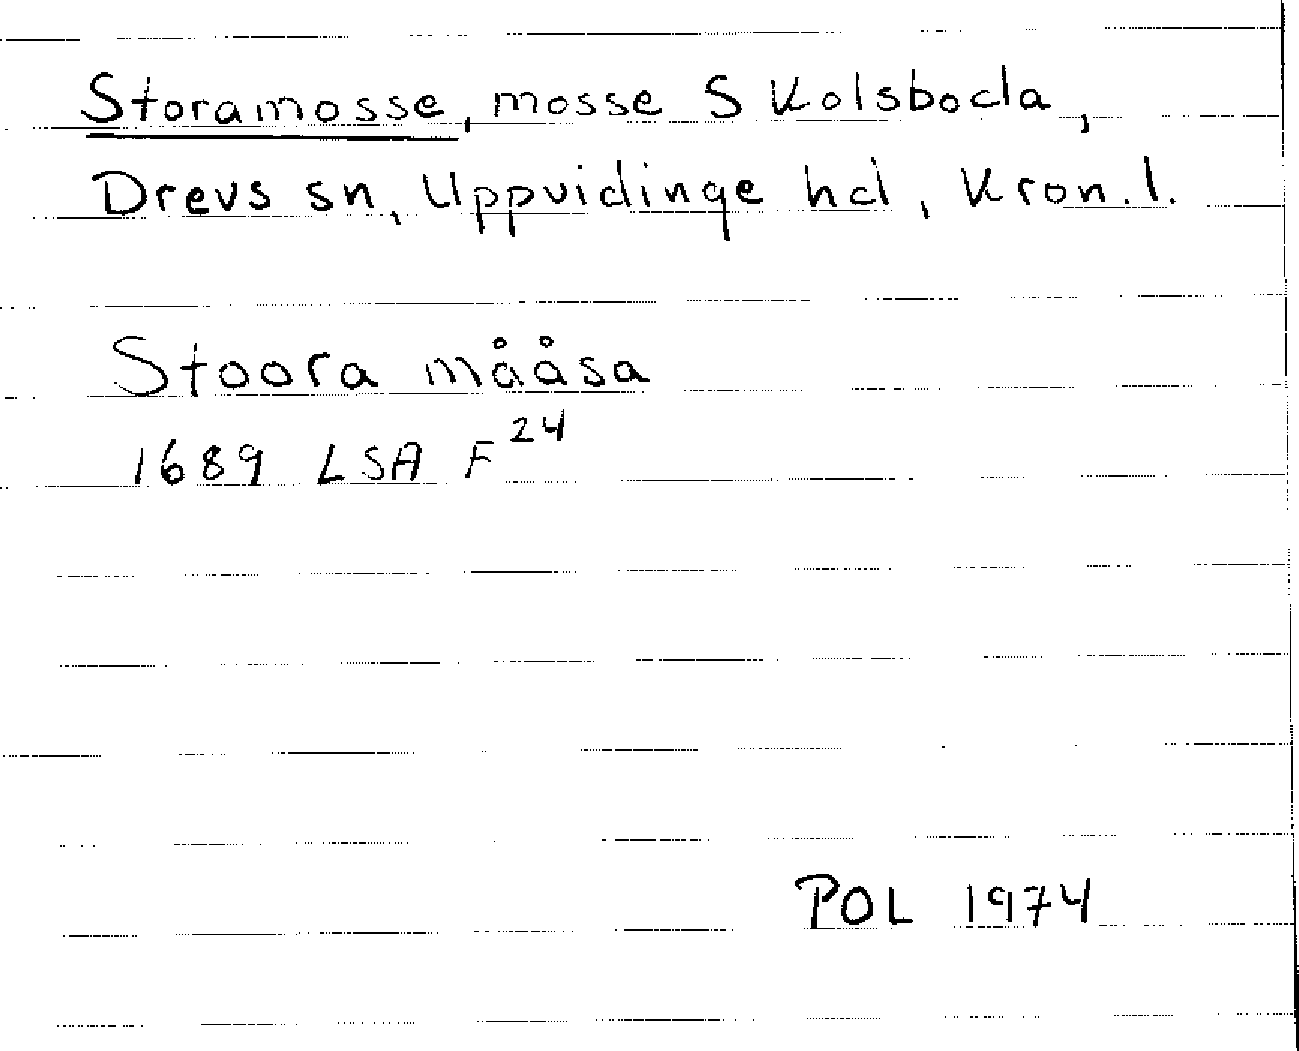 Storamosse, mosse S Kolsboda,
Drevs sn, Uppvidinge hd, Kron.l.
Stoora mååsa
1689 LSA F²⁴
POL 1974